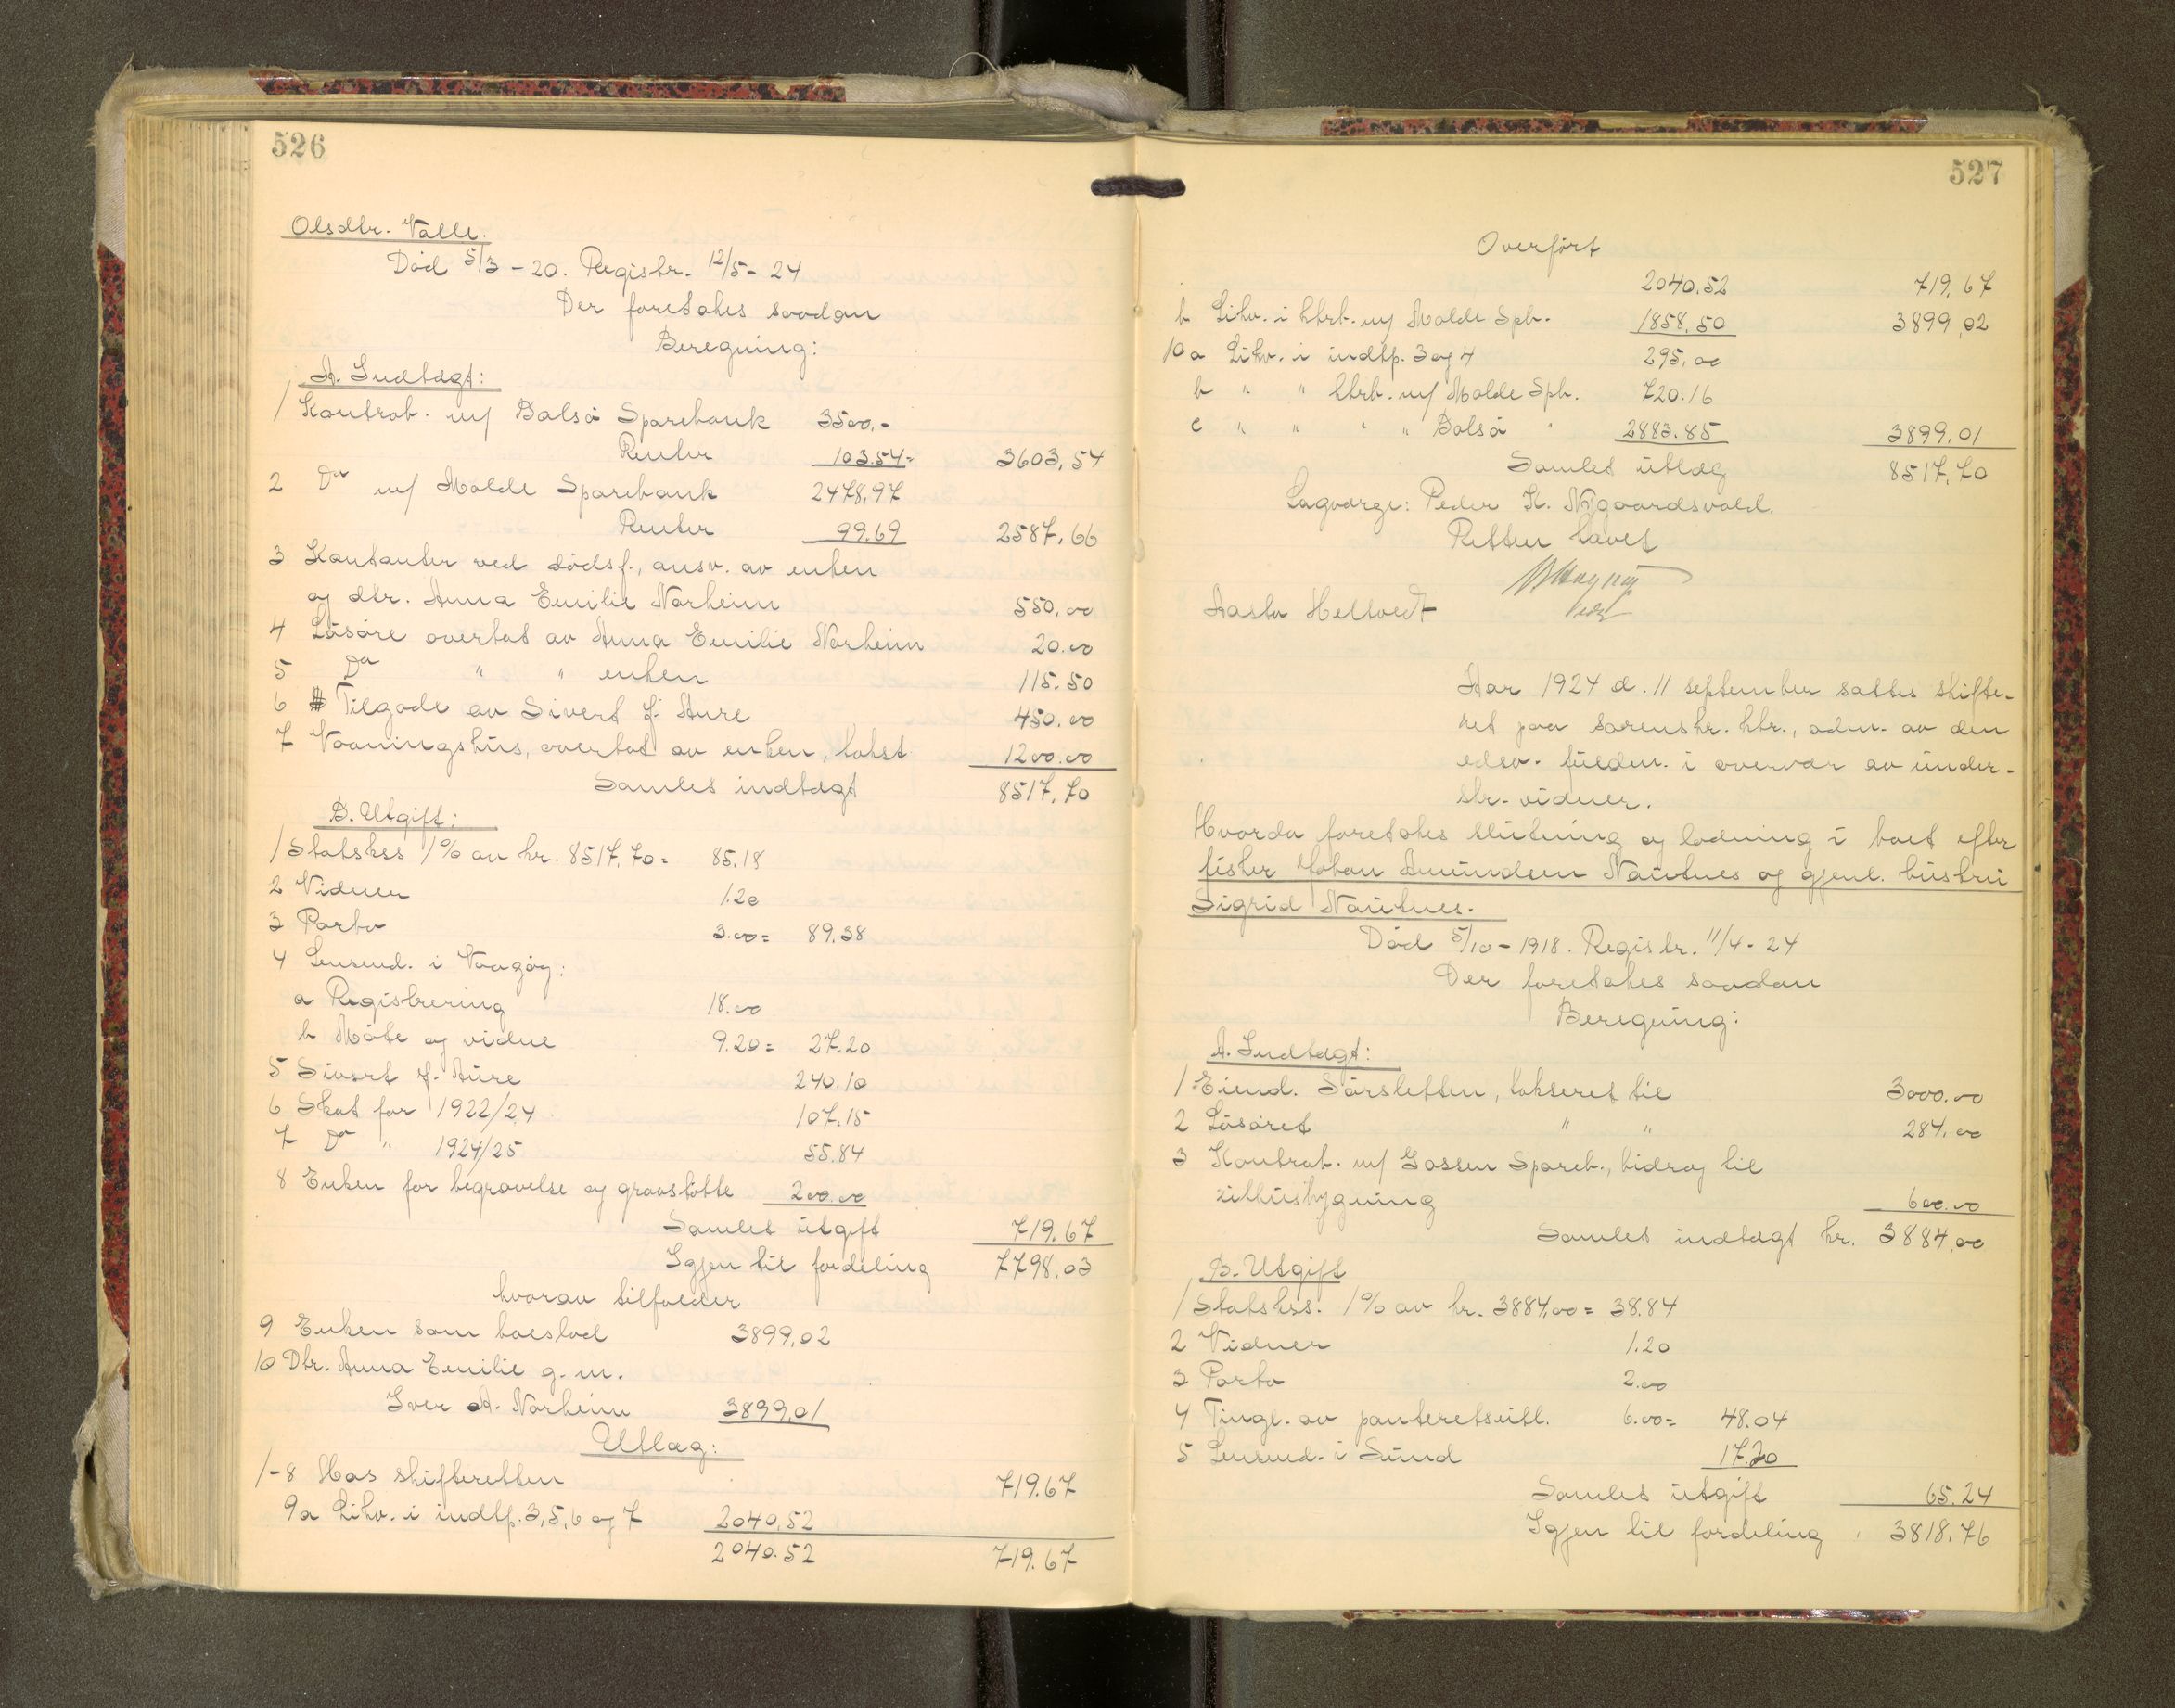 526
Olsdtr. Valle.
Død 5/3 - 20. Registr. 12/5 - 24
Der foretakes saadan
Beregning:
A. Indtægt:
1 Kontrab. m/ Bolsø Sparebank 3500.-
Renter 103.54 = 3603,54
2 Do m/ Molde Sparebank 2478,97
Renter 99.69 2587,66
3 Kontanter ved dødsf., ansv. av enken
og dtr. Anna Emilie Norheim 550,00
4 Løsøre overtat av Anna Emilie Norheim 20.00
5 Do " " enken 115.50
6 Tilgode av Sivert J. Aure 450.00
7 Vaaningshus, overtat av enken, takst 1200.00
Samlet indtægt 8517,70
B. Utgift:
1 Statskss 1% av kr. 8517,70 = 85.18
2 Vidner 1.20
3 Porto 3.00 = 89.38
4 Lensmd. i Vaagøy:
a Registrering 18.00
b Møte og vidne 9.20 = 27.20
5 Sivert J. Aure 240.10
6 Skat for 1922/24 107.15
7 Do " 1924/25 55.84
8 Enken for begravelse og gravstøtte 200.00
Samlet utgift 719.67
Igjen til fordeling 7798,03
hvorav tilfalder
9 Enken som boeslod 3899,02
10 Dtr. Anna Emilie g. m.
Iver A. Norheim 3899,01
Utlæg:
1-8 Hos skifteretten 719.67
9a Likv. i indtp. 3, 5, 6 og 7 2040,52
2040.52 719.67
527
Overført
2040.52 719.67
b Likv. i ktrb. m/ Molde Spb. 1858.50 3899,02
10 a Likv. i indtp. 3 og 4 295,00
b " " ktrb. m/ Molde Spb. 720.16
c " " " " Bolsø " 2883.85 3899.01
Samlet utlæg 8517,70
Lagværge: Peder K. Nygaardsvold.
Retten hævet
Aasta Heltvedt
Aar 1924 d. 11 september sattes skifte-
ret paa sorenskr. ktr., adm. av den
edsv. fuldm. i overvær av under-
skr. vidner.
Hvorda foretokes slutning og lodning i boet efter
fisker Johan Amundsen Nautnes og gjenl. hustru
Sigrid Nautnes.
Død 5/10 - 1918. Registr. 11/4 - 24
Der foretokes saadan
Beregning:
A. Indtægt:
1 Eiend. Sørsletten, takseret til 3000.00
2 Løsøret " " 284,00
3 Kontrab. m/ Gossen Spareb., bidrag til
uthusbygning 600.00
Samlet indtægt kr. 3884,00
B. Utgift
1 Statskss. 1% av kr. 3884,00 = 38.84
2 Vidner 1.20
3 Porto 2.00
4 Tingl. av panteretsutl. 6.00 = 48.04
5 Lensmd. i Sund 17.20
Samlet utgift 65.24
Igjen til fordeling 3818.76